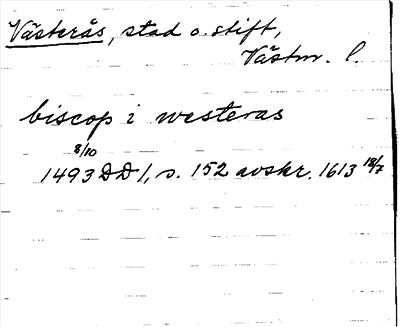 Västerås, stad o. stift,
Västm. l.
biscop i westeras
8/10
1493 DD 1, s. 152 avskr. 1613 18/7